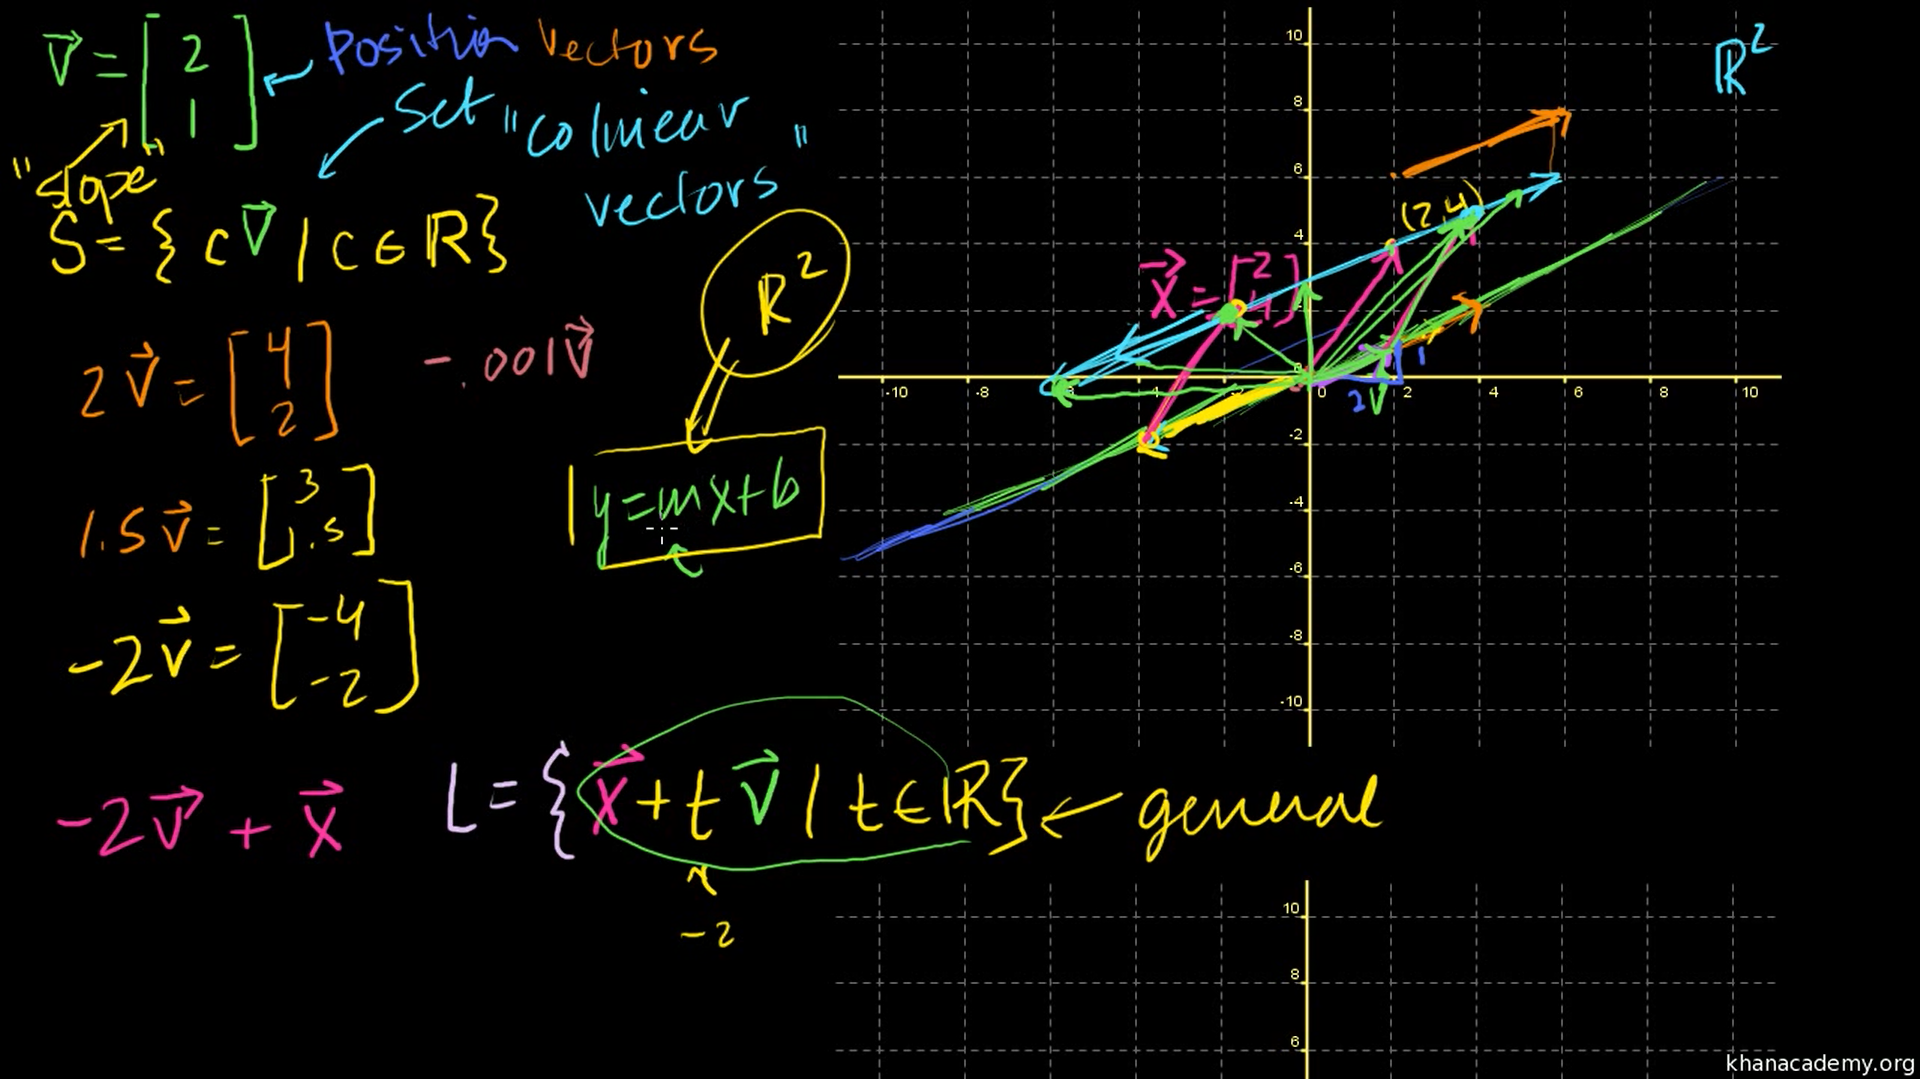 v = [2 1] ← Position Vectors
Set "colinear vectors"
"slope"
S = { c v | c ∈ R }
R²
2v = [4 2]
-.001v
y = mx + b
1.5v = [3 1.5]
-2v = [-4 -2]
-2v + x
L = { x + t v | t ∈ R } ← general
-2
R²
(2,4)
x = [2 4]
1
2
v
10
8
6
4
-10 -8 -4 0 2 4 6 8 10
-2
-4
-6
-8
-10
10
8
6
khanacademy.org